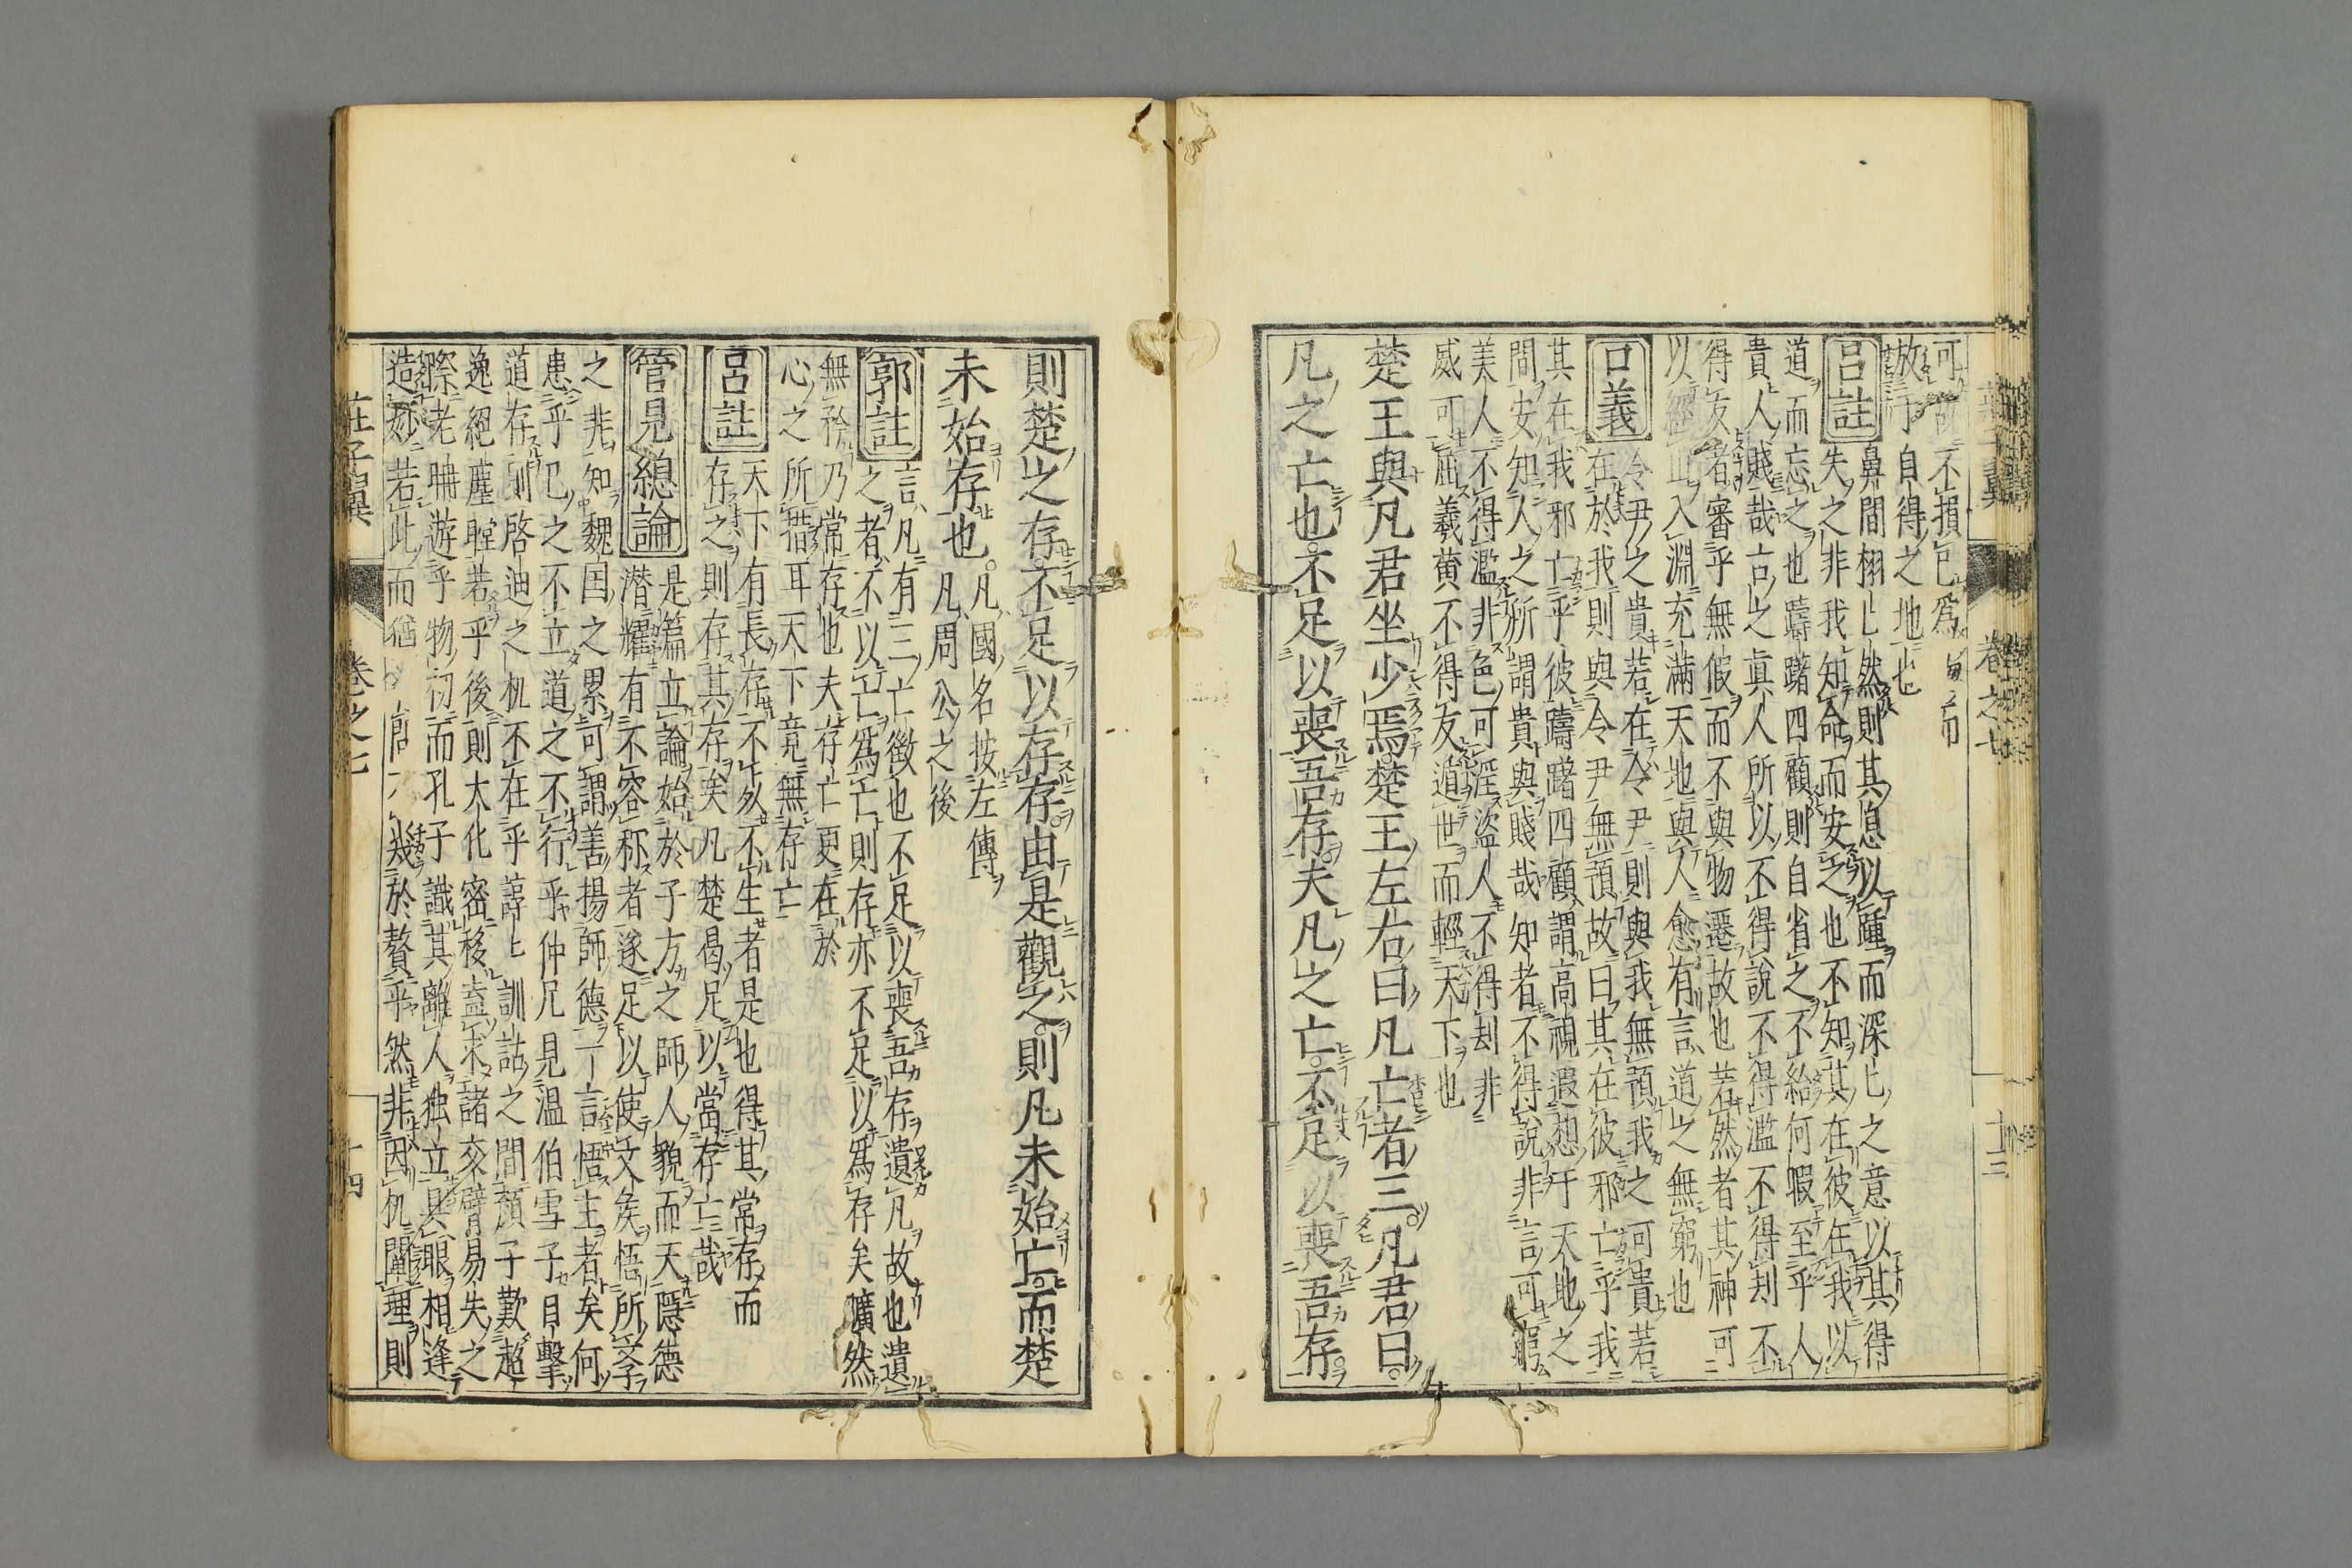 不損已爲
放于自得之地也
呂註
鼻間栩〻然則其息以踵而深〻之意以其得
失之非我知命而安之也不知其在彼在我以
道而忘之也躊躇四顧則自省之不給何暇至乎人
貴人賤哉古之眞人所以不得說不得濫不得刦不
得友者審乎無假而不與物遷故也若然者其神可
以經山入淵充滿天地與人愈有言道之無窮也
口義
令尹之貴若在令尹則與我無預我之可貴若
在於我則與令尹無預故曰其在彼邪亡乎我
其在我邪亡乎彼躊躇四顧謂高視遐想于天地之
間安知人之所謂貴與賤哉知者不得說非言可窮
美人不得濫非色可淫盜人不得刦非
威可屈羲黄不得友遁世而輕天下也
楚王與凡君坐少焉楚王左右曰凡亡者三凡君曰
凡之亡也不足以喪吾存夫凡之亡不足以喪吾存
則楚之存不足以存存由是觀之則凡未始亡而楚
未始存也
凡國名按左傳
凡周公之後
郭註
言凡有三亡徴也不足以喪吾存遺凡故也遺
之者不以亡爲亡則存亦不足以爲存矣曠然
無矜乃常存也夫存亡更在於
心之所措耳天下竟無存亡
呂註
天下有長存不死不生者是也得其常存而
存之則存其存矣凡楚曷足以當存亡哉
管見總論
是篇立論始於子方之師人貌而天隱德
潜耀有不容称者遂足以使文矦悟所李
之非知魏国之累可謂善揚師德一言悟主者矣何
患乎已之不立道之不行乎仲尼見温伯雪子目擊
道存則啓迪之机不在乎諄〻訓詁之間顔子歎超
逸絕塵瞠若乎後則大化密移盍求諸交臂易失之
際老聃遊乎物初而孔子識其離人独立具眼相逢
造妙若此而猶
幾於贅乎然非因机闡理則
莊子翼
卷之七
十四
卷之七
十三